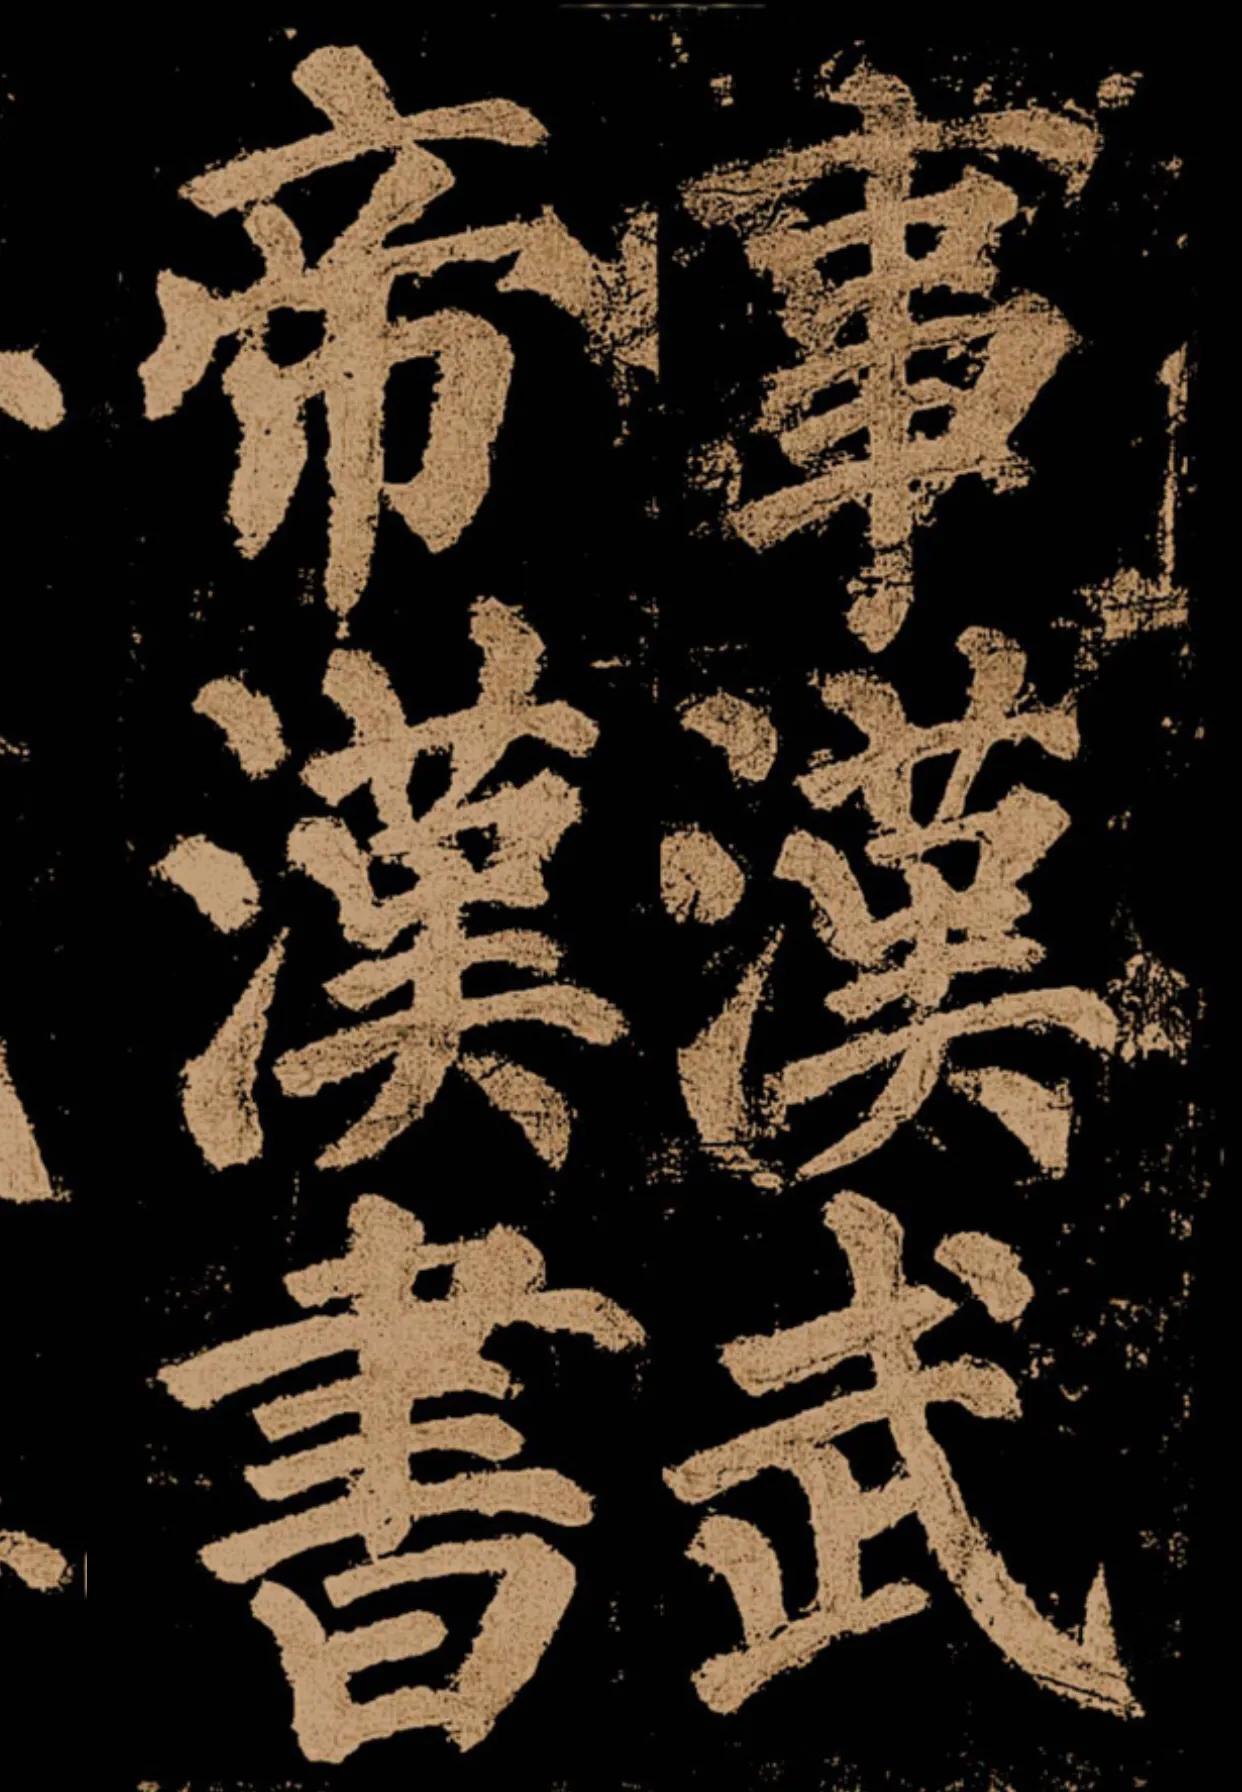 事漢武
帝漢書